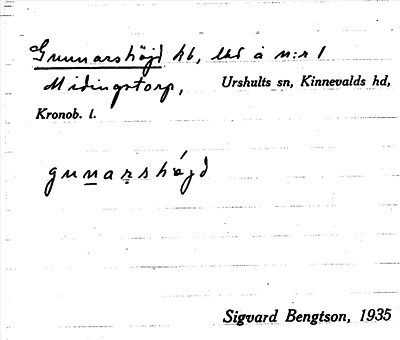 Gunnarshöjd hb, lht å n:r 1
Midingstorp, Urshults sn, Kinnevalds hd,
Kronob. l.
gunarshöjd
Sigvard Bengtson, 1935